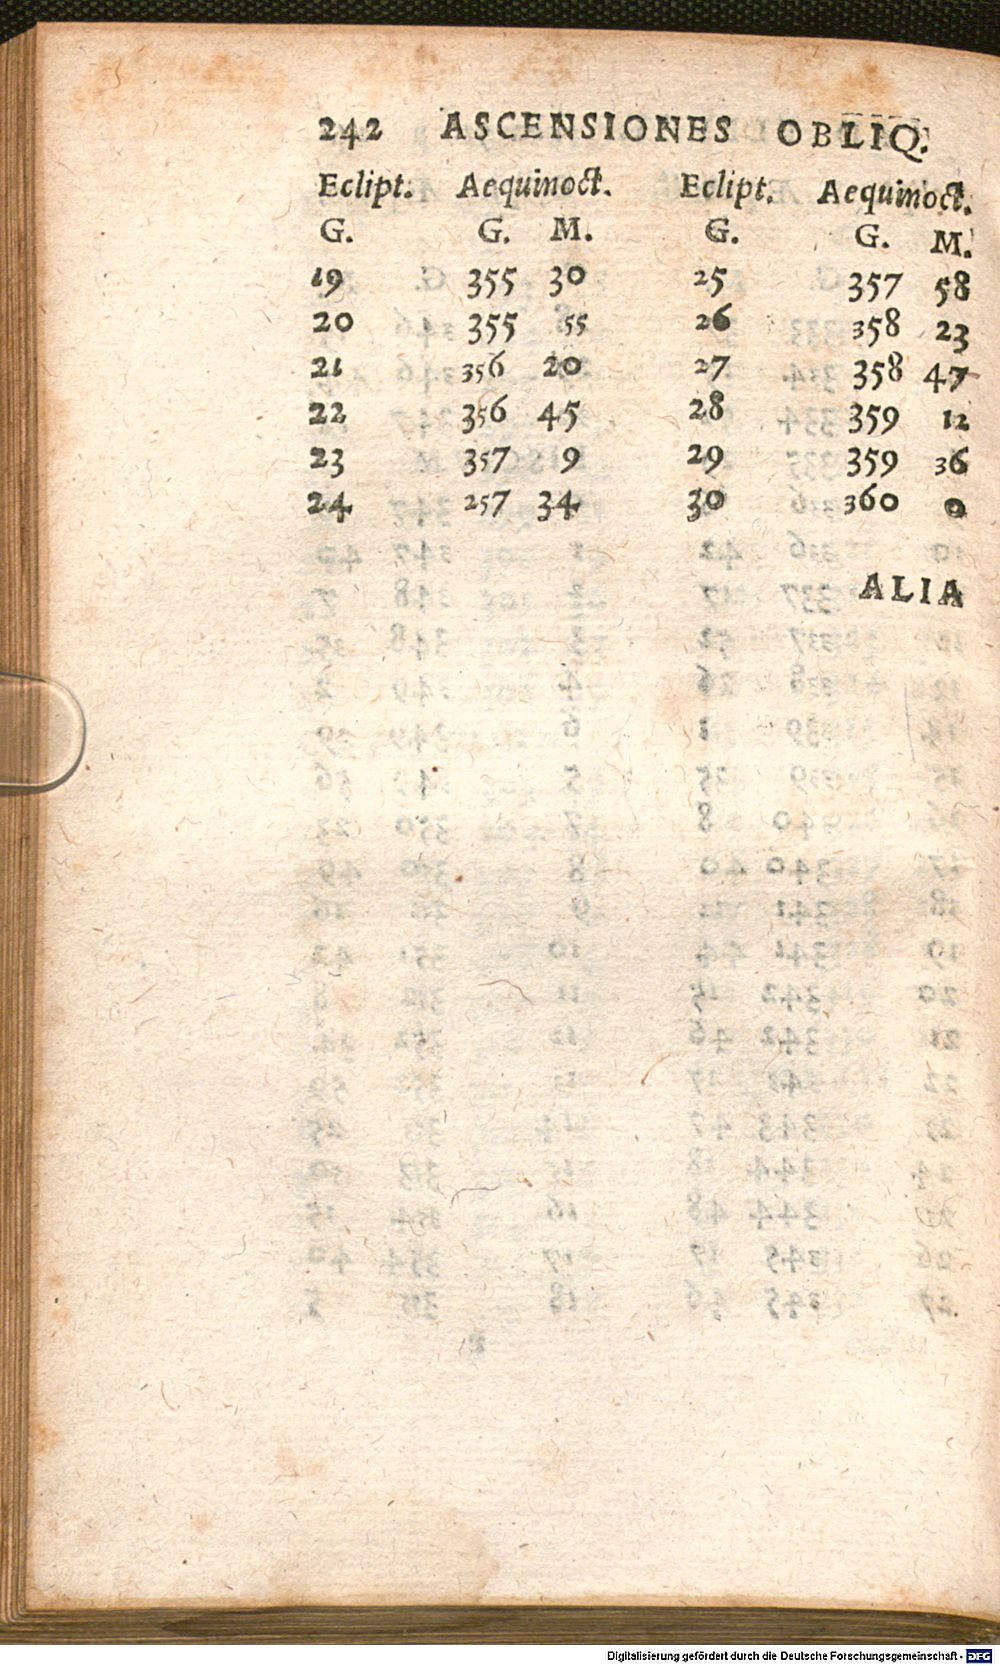 242 ASCENSIONES OBLIQ.
Eclipt. Aequinoct. Eclipt. Aequinoct.
G. G. M. G. G. M.
19 355 30 25 357 58
20 355 55 26 358 23
21 356 20 27 358 47
22 356 45 28 359 12
23 357 9 29 359 36
24 257 34 30 360 0
ALIA
Digitalisierung gefördert durch die Deutsche Forschungsgemeinschaft - DFG